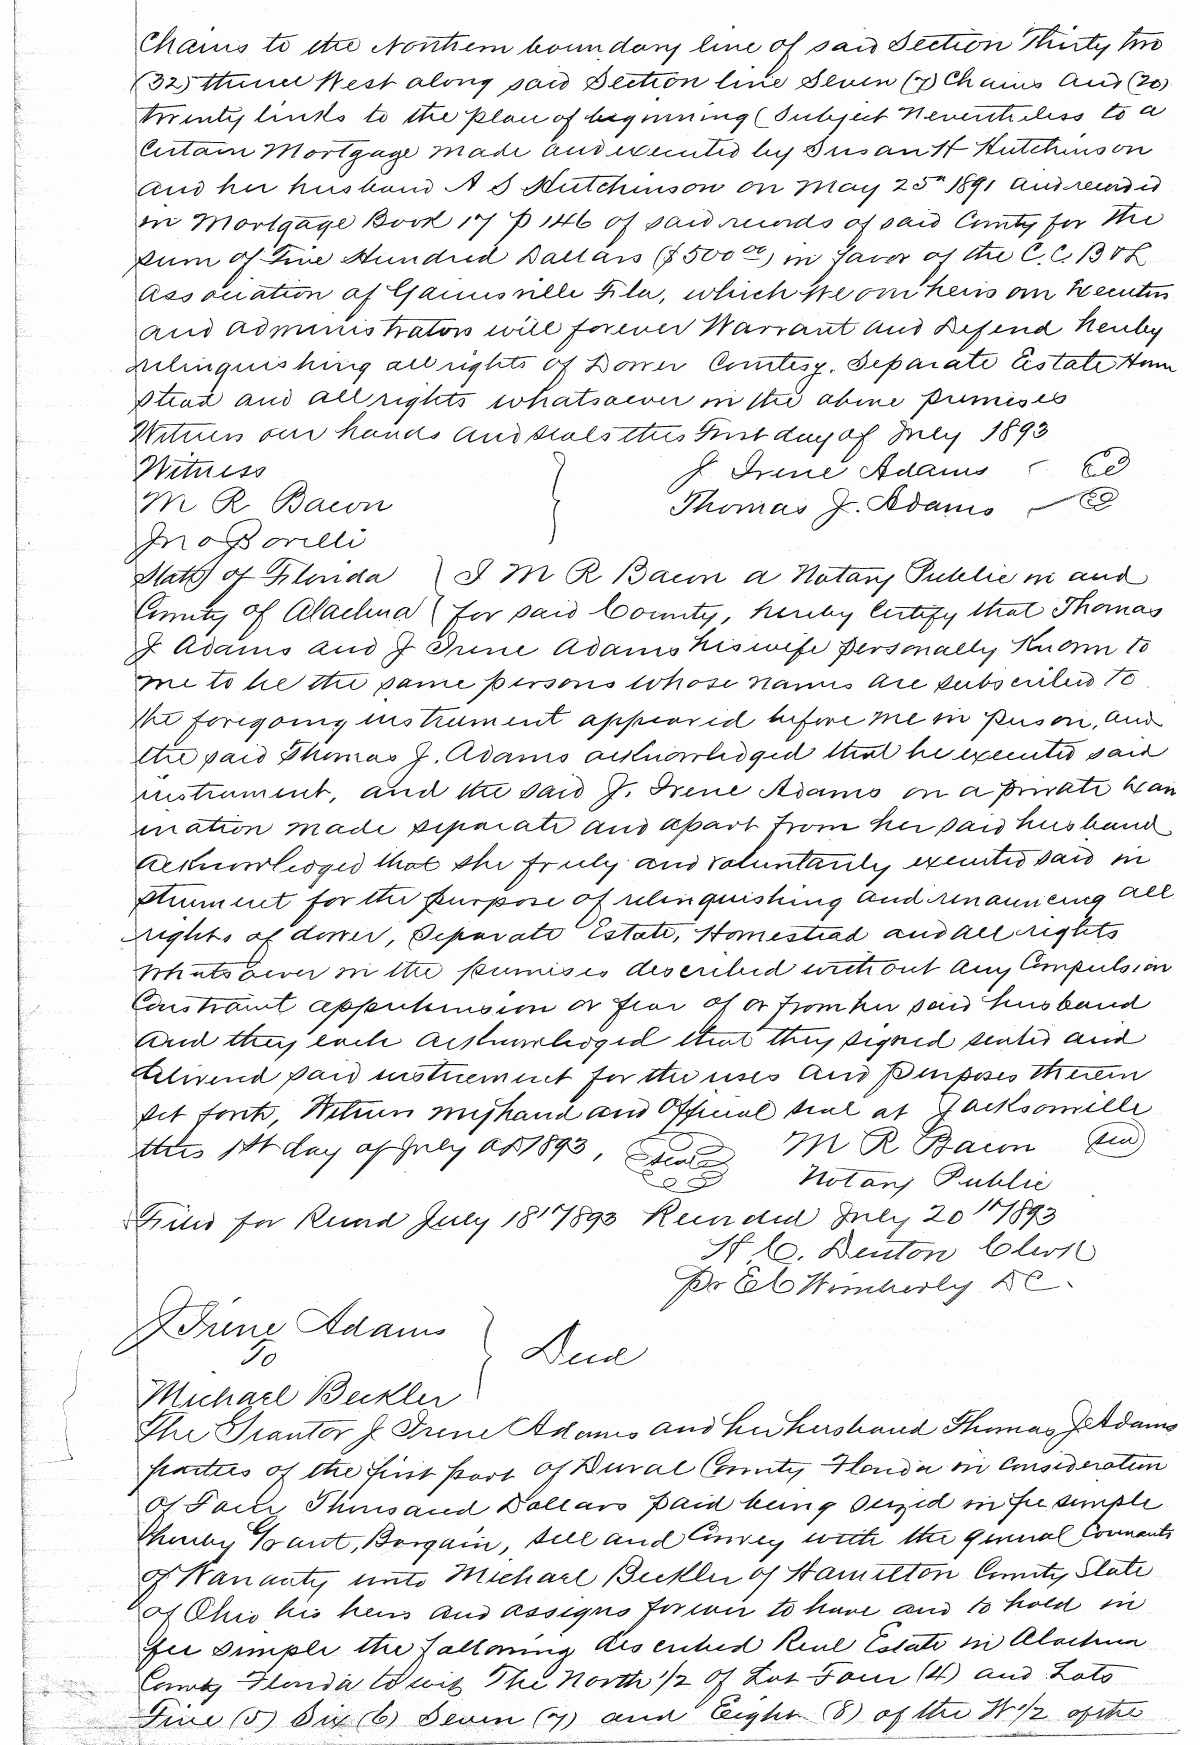 Chains to the Northern boundary line of said Section Thirty two
(32) thence West along said Section line Seven (7) Chains and (20)
twenty links to the place of beginning (Subject Nevertheless to a
Certain Mortgage made and executed by Susan H Hutchinson
and her husband A S Hutchinson on May 25th 1891 and recorded
in Mortgage Book 17 p 146 of said records of said County for the
sum of Five Hundred Dollars ($500 00) in favor of the C. C. B & L
Association of Gainesville Fla, which We our heirs our Executors
and administrators will forever Warrant and Defend hereby
relinquishing all rights of Dower Courtesy. Separate Estate Home
stead and all rights whatsoever in the above premises
Witness our hands and seals this First day of July 1893
Witness } J Irene Adams
M R Bacon Thomas J. Adams
Jno Borelli
State of Florida } I M R Bacon a Notary Public in and
County of Alachua } for said County, hereby Certify that Thomas
J Adams and J Irene Adams his wife personally Known to
me to be the same persons whose names are subscribed to
the foregoing instrument appeared before me in person, and
the said Thomas J. Adams acknowledged that he executed said
instrument, and the said J. Irene Adams on a private Exam
ination made separate and apart from her said husband
Acknowledged that she freely and voluntarily executed said in
strument for the purpose of relinquishing and renouncing all
rights of dower, Separate Estate, Homestead and all rights
whatsoever in the premises described without any Compulsion
Constraint apprehension or fear of or from her said husband
and they each acknowledged that they signed sealed and
delivered said instrument for the uses and purposes therein
set forth, Witness my hand and Official seal at Jacksonville
this 1st day of July AD 1893, seal M R Bacon seal
Notary Public
Filed for Record July 18th 1893 Recorded July 20th 1893
H. C. Denton Clerk
Pr E C Wimberly D C.
J Irene Adams
To } Deed
Michael Beckler
The Grantor J Irene Adams and her husband Thomas J Adams
parties of the first part of Duval County Florida in consideration
of Four Thousand Dollars paid being seized in fee simple
hereby Grant, Bargain, sell and Convey with the general Covenants
of Warranty unto Michael Beckler of Hamilton County State
of Ohio his heirs and assigns forever to have and to hold in
fee simple the following described Real Estate in Alachua
County Florida to wit The North 1/2 of Lot Four (4) and Lots
Five (5) Six (6) Seven (7) and Eight (8) of the W 1/2 of the